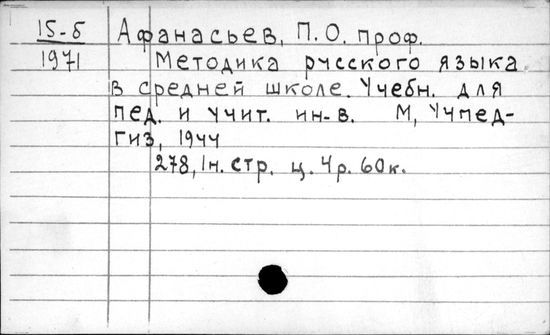 15-б Афанасьев, П.О. проф.
1971 Методика русского языка
в средней школе. Учебн. для
пед. и учит. ин-в. М, Учпед-
гиз, 1944
278, 1н. стр. ц. 4р. 60к.